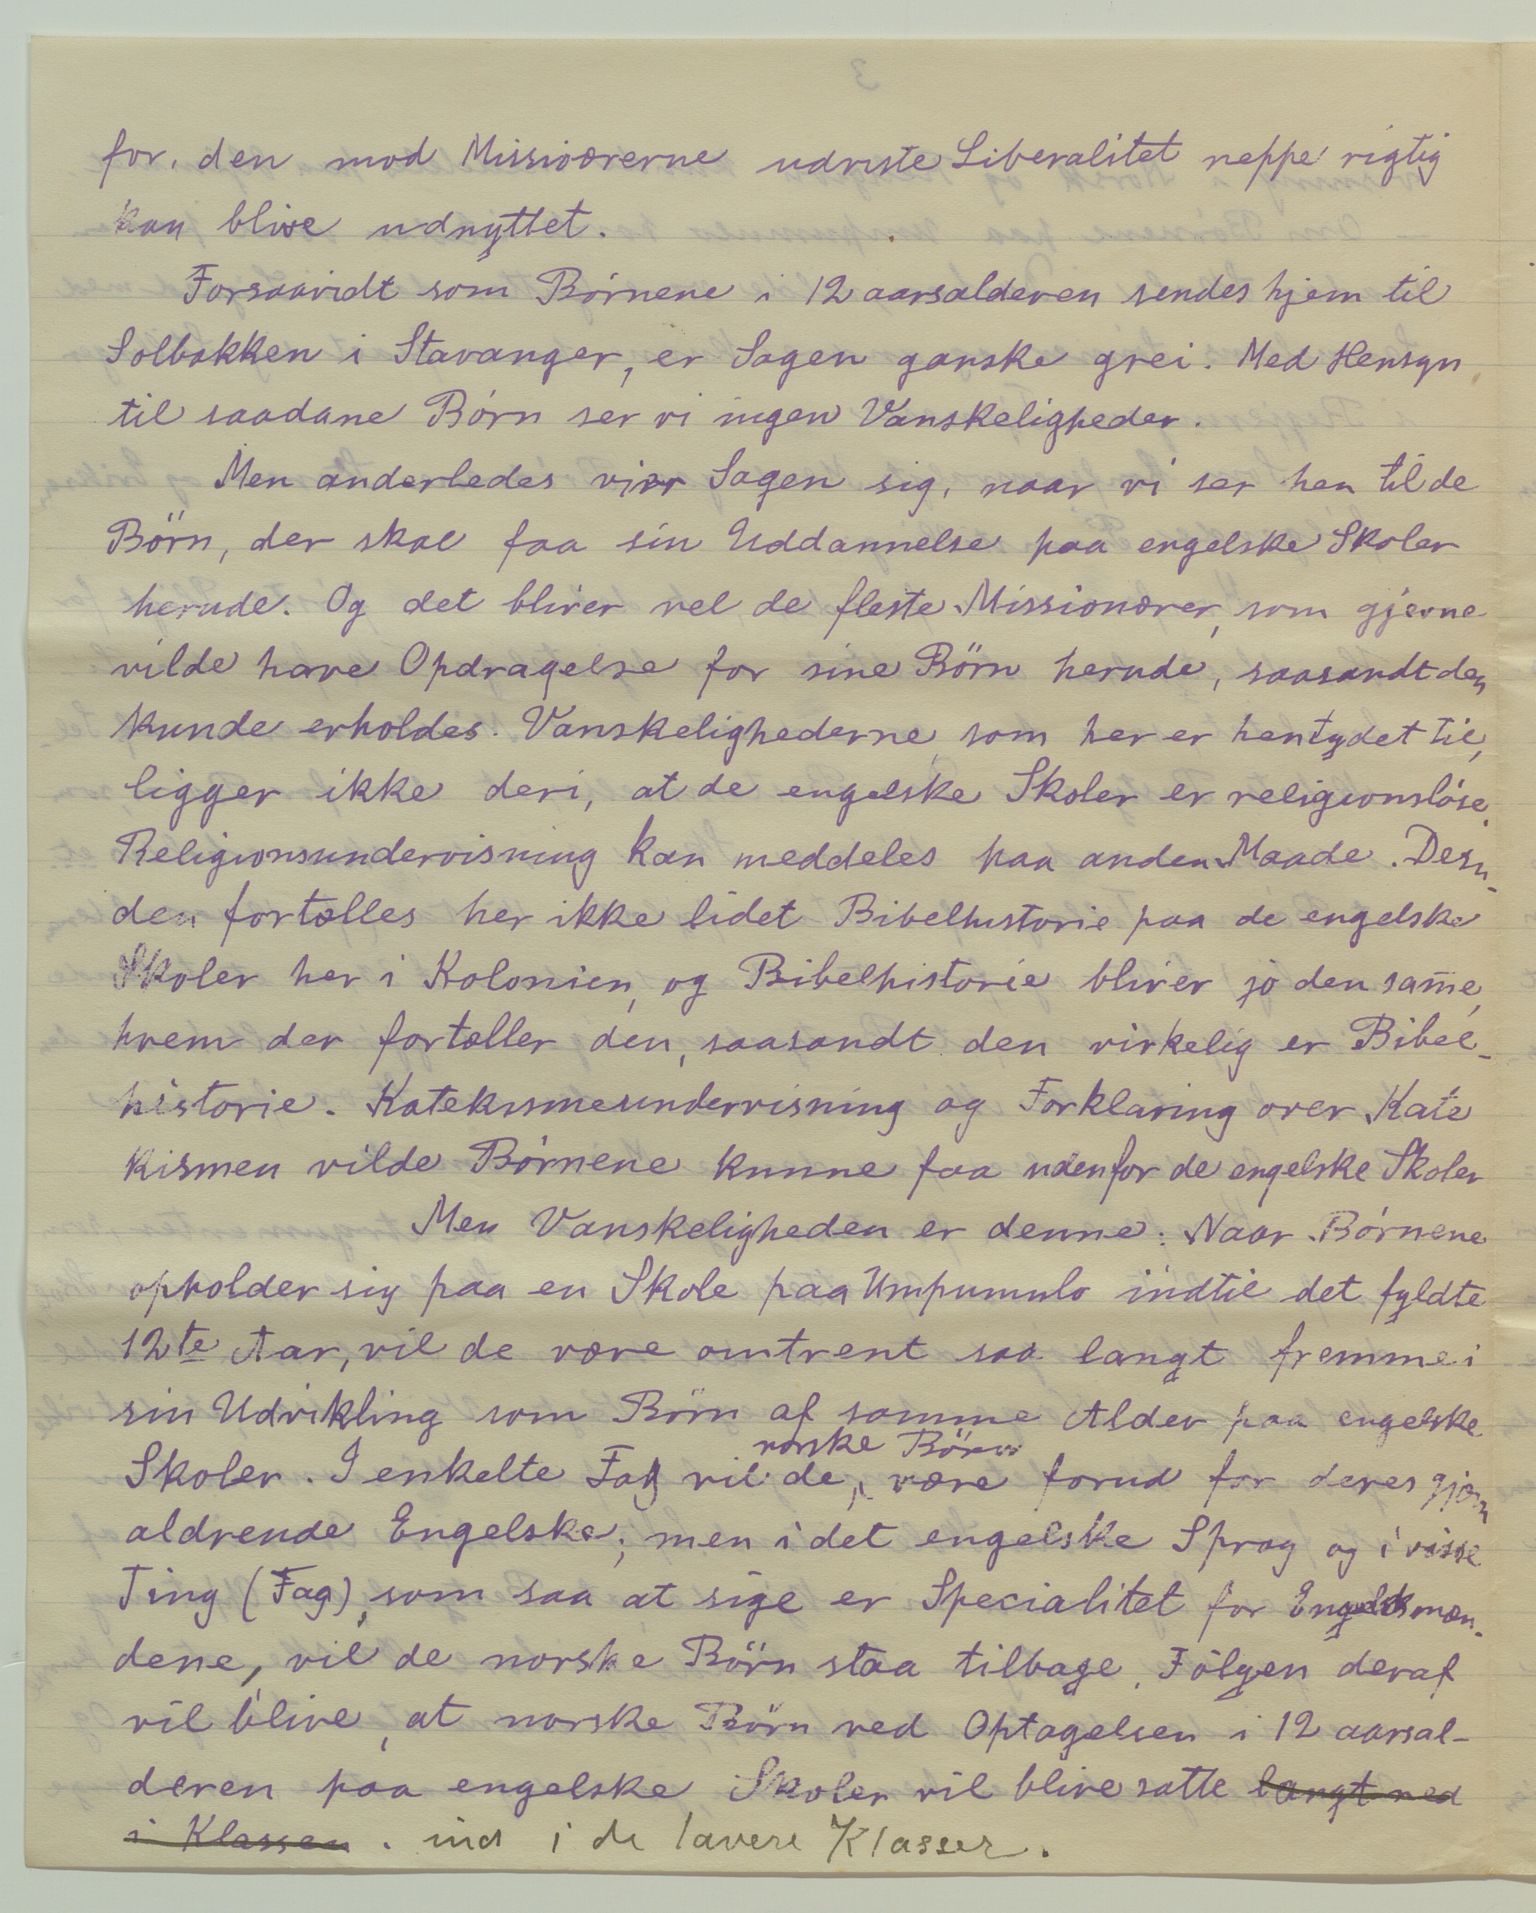 3
for, den mod Missionærerne udviste Liberalitet neppe rigtig
kan blive udnyttet.
Forsaavidt som Börnene i 12 aarsalderen sendes hjem til
Solbakken i Stavanger, er Sagen ganske grei. Med Hensyn
til saadane Börn ser vi ingen Vanskeligheder.
Men anderledes viser Sagen sig, naar vi ser hen til de
Börn, der skal faa sin Uddannelse paa engelske Skoler
herude. Og det bliver vel de fleste Missionærer, som gjerne
vilde have Opdragelse for sine Börn herude, saasandt den
kunde erholdes. Vanskelighederne, som her er hentydet til,
ligger ikke deri, at de engelske Skoler er religionslöse.
Religionsundervisning kan meddeles paa anden Maade. Desu-
den fortælles her ikke lidet Bibelhistorie paa de engelske
Skoler her i Kolonien, og Bibelhistorie bliver jo den sam̅e,
hvem der fortæller den, saasandt den virkelig er Bibel-
historie. Katekismeundervisning og Forklaring over Kate
kismen vilde Börnene kunne faa udenfor de engelske Skoler
Men Vanskeligheden er denne: Naar Börnene
opholder sig paa en Skole paa Umpumulo indtil det fyldte
12te Aar, vil de være omtrent saa langt fremme i
sin Udvikling som Börn af samme Alder paa engelske
norske Börn
Skoler. I enkelte Fag vil de, være forud for deres gjævn
aldrende Engelske; men i det engelske Sprog og i visse
Ting (Fag), som saa at sige er Specialitet for Engelskmæn-
dene, vil de norske Börn staa tilbage. Fölgen deraf
vil blive, at norske Börn ved Optagelsen i 12 aarsal-
deren paa engelske Skoler vil blive satte langt ned
i Klassen. ind i de lavere Klasser.